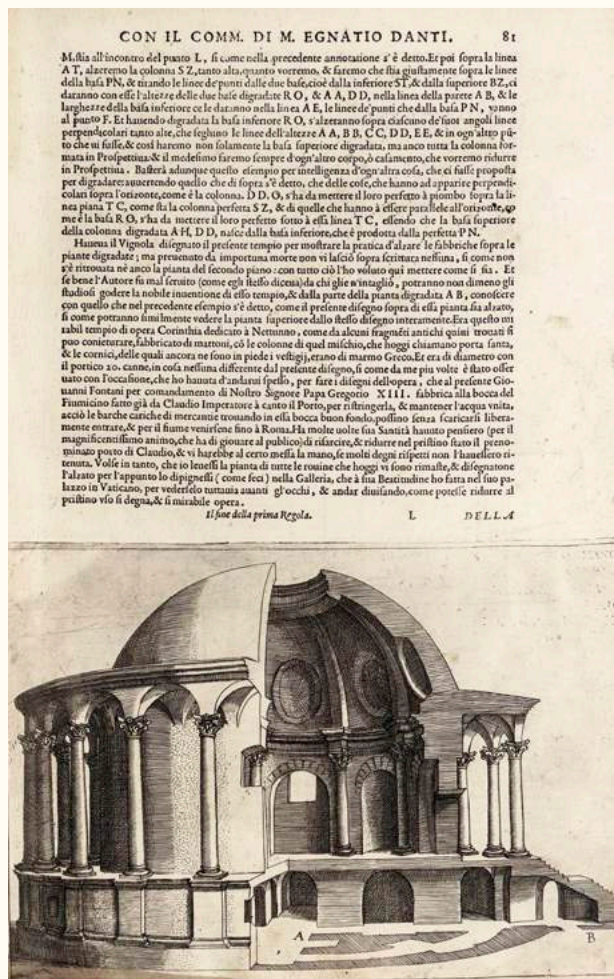 CON IL COMM. DI M. EGNATIO DANTI. 81
M, stia all'incontro del punto L, si come nella precedente annotatione s'è detto. Et poi sopra la linea
A T, alzeremo la colonna S Z, tanto alta, quanto vorremo, & faremo che stia giustamente sopra le linee
della basa P N, & tirando le linee de' punti dalle due base, cioè dalla inferiore S T, & dalla superiore B Z, ci
daranno con esse l'altezze delle due base digradate R O, & A A, D D, nella linea della parete A B, & le
larghezze della basa inferiore ce le daranno nella linea A E, le linee de' punti che dalla basa P N, vanno
al punto F. Et hauendo digradata la basa inferiore R O, s'alzeranno sopra ciascuno de' suoi angoli linee
perpendicolari tanto alte, che seghino le linee dell'altezze A A, B B, C C, D D, E E, & in ogn'altro pũ-
to che vi fusse, & così haremo non solamente la basa superiore digradata, ma anco tutta la colonna for-
mata in Prospettiua: & il medesimo faremo sempre d'ogn'altro corpo, ò casamento, che vorremo ridurre
in Prospettiua. Basterà adunque questo esempio per intelligenza d'ogn'altra cosa, che ci fusse proposta
per digradare: auuertendo quello che di sopra s'è detto, che delle cose, che hanno ad apparire perpendi-
colari sopra l'orizonte, come è la colonna. D D. O, s'ha da mettere il loro perfetto à piombo sopra la li-
nea piana T C, come sta la colonna perfetta S Z, & di quelle che hanno à essere parallele all'orizonte, co
me è la basa R O, s'ha da mettere il loro perfetto sotto à essa linea T C, essendo che la basa superiore
della colonna digradata A H, D D, nasce dalla basa inferiore, che è prodotta dalla perfetta P N.
Haueua il Vignola disegnato il presente tempio per mostrare la pratica d'alzare le fabbriche sopra le
piante digradate; ma preuenuto da importuna morte non vi lasciò sopra scrittura nessuna, si come non
s'è ritrouata nè anco la pianta del secondo piano: con tutto ciò l'ho voluto qui mettere come si sia. Et
se bene l'Autore fu mal seruito (come egli stesso diceua) da chi glie n'intagliò, potranno non dimeno gli
studiosi godere la nobile inuentione di esso tempio, & dalla parte della pianta digradata A B, conoscere
con quello che nel precedente esempio s'è detto, come il presente disegno sopra di essa pianta sia alzato,
si come potranno similmente vedere la pianta superiore dallo stesso disegno interamente. Era questo mi
rabil tempio di opera Corinthia dedicato à Nettunno, come da alcuni fragmẽti antichi quiui trouati si
puo conieturare, fabbricato di mattoni, cõ le colonne di quel mischio, che hoggi chiamano porta santa,
& le cornici, delle quali ancora ne sono in piede i vestigij, erano di marmo Greco. Et era di diametro con
il portico 20. canne, in cosa nessuna differente dal presente disegno, si come da me piu volte è stato osser
uato con l'occasione, che ho hauuta d'andarui spesso, per fare i disegni dell'opera, che al presente Gio-
uanni Fontani per comandamento di Nostro Signore Papa Gregorio XIII. fabbrica alla bocca del
Fiumicino fatto già da Claudio Imperatore à canto il Porto, per ristringerla, & mantener l'acqua vnita,
acciò le barche cariche di mercantie trouando in essa bocca buon fondo, possino senza scaricarsi libera-
mente entrare, & per il fiume venirsene fino à Roma. Ha molte uolte sua Santità hauuto pensiero (per il
magnificentissimo animo, che ha di giouare al publico) di risarcire, & ridurre nel pristino stato il preno-
minato porto di Claudio, & vi harebbe al certo messa la mano, se molti degni rispetti non l'hauessero ri-
tenuta. Volse in tanto, che io leuassi la pianta di tutte le rouine che hoggi vi sono rimaste, & disegnatone
l'alzato per l'appunto lo dipignessi (come feci) nella Galleria, che à sua Beatitudine ho fatta nel suo pa-
lazzo in Vaticano, per vederselo tuttauia auanti gl'occhi, & andar diuisando, come potesse ridurre al
pristino vso sì degna, & sì mirabile opera.
Il fine della prima Regola. L DELLA
A B